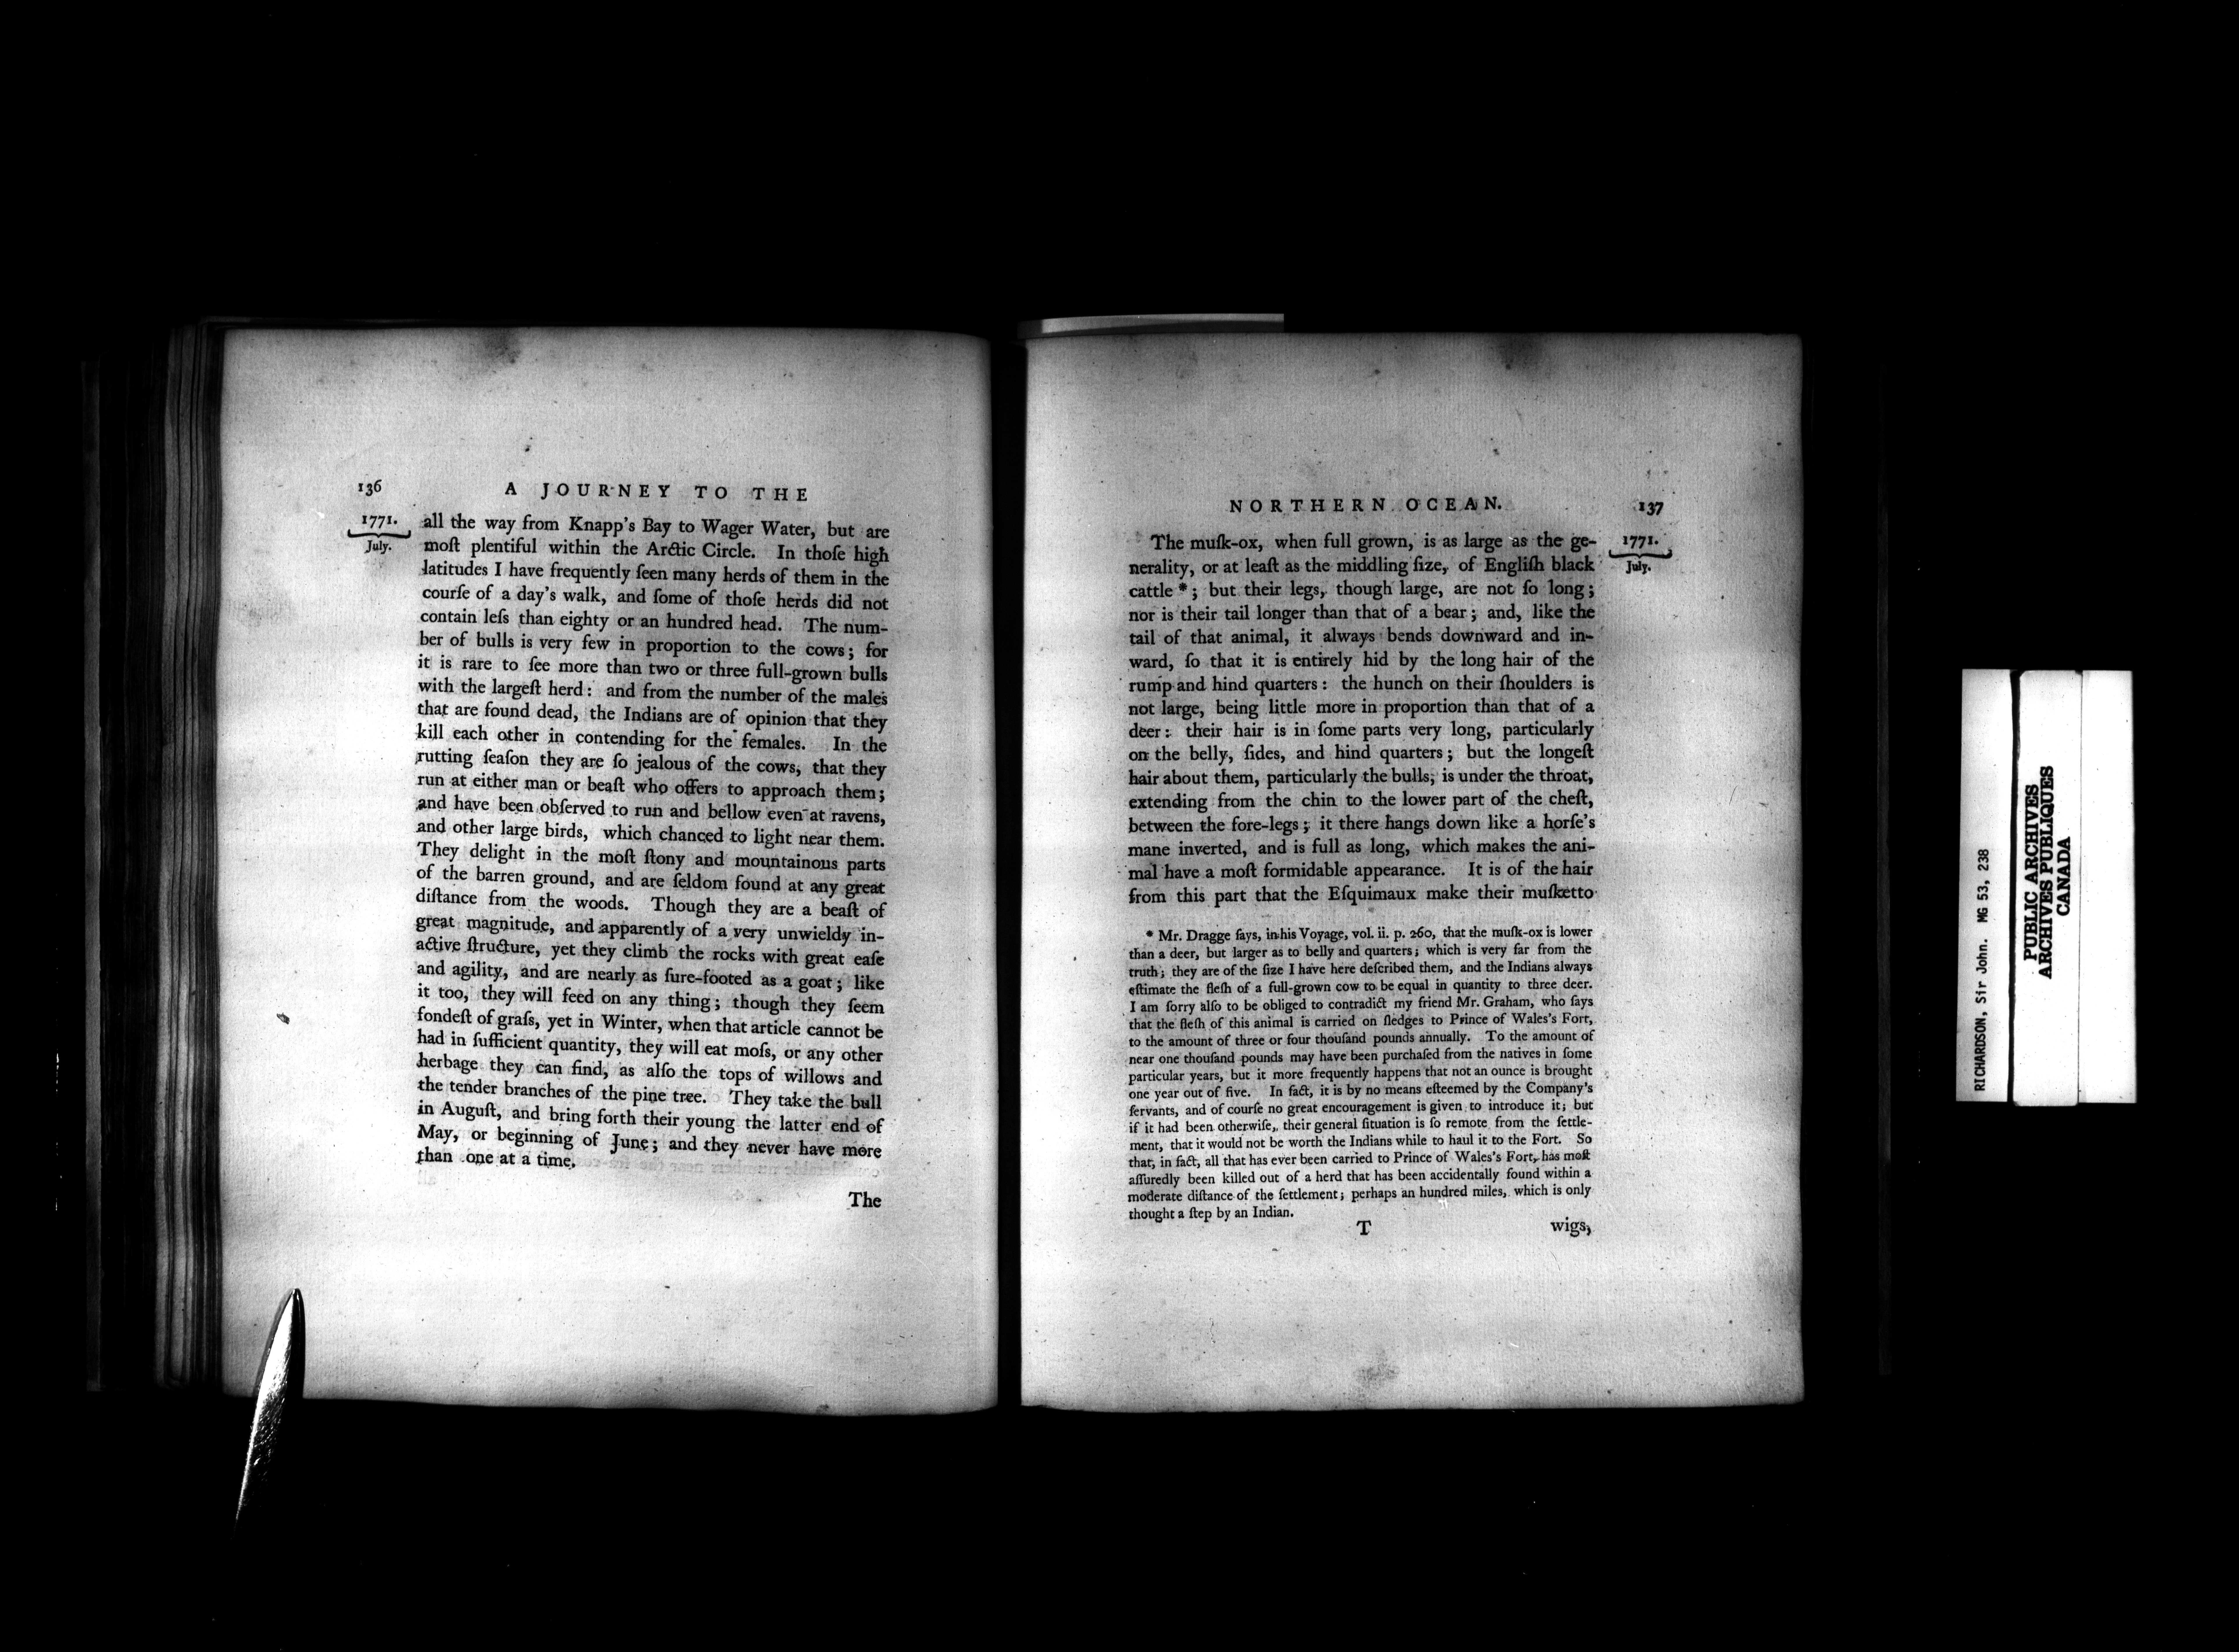 136
A JOURNEY TO THE
1771.
July.
all the way from Knapp's Bay to Wager Water, but are
moſt plentiful within the Arctic Circle. In thoſe high
latitudes I have frequently ſeen many herds of them in the
courſe of a day's walk, and ſome of thoſe herds did not
contain leſs than eighty or an hundred head. The num-
ber of bulls is very few in proportion to the cows; for
it is rare to ſee more than two or three full-grown bulls
with the largeſt herd: and from the number of the males
that are found dead, the Indians are of opinion that they
kill each other in contending for the females. In the
rutting ſeaſon they are ſo jealous of the cows, that they
run at either man or beaſt who offers to approach them;
and have been obſerved to run and bellow even at ravens,
and other large birds, which chanced to light near them.
They delight in the moſt ſtony and mountainous parts
of the barren ground, and are ſeldom found at any great
diſtance from the woods. Though they are a beaſt of
great magnitude, and apparently of a very unwieldy in-
active ſtructure, yet they climb the rocks with great eaſe
and agility, and are nearly as ſure-footed as a goat; like
it too, they will feed on any thing; though they ſeem
fondeſt of graſs, yet in Winter, when that article cannot be
had in ſufficient quantity, they will eat moſs, or any other
herbage they can find, as alſo the tops of willows and
the tender branches of the pine tree. They take the bull
in Auguſt, and bring forth their young the latter end of
May, or beginning of June; and they never have more
than one at a time.
The
NORTHERN OCEAN.
137
1771.
July.
The muſk-ox, when full grown, is as large as the ge-
nerality, or at leaſt as the middling ſize, of Engliſh black
cattle *; but their legs, though large, are not ſo long;
nor is their tail longer than that of a bear; and, like the
tail of that animal, it always bends downward and in-
ward, ſo that it is entirely hid by the long hair of the
rump and hind quarters: the hunch on their ſhoulders is
not large, being little more in proportion than that of a
deer: their hair is in ſome parts very long, particularly
on the belly, ſides, and hind quarters; but the longeſt
hair about them, particularly the bulls, is under the throat,
extending from the chin to the lower part of the cheſt,
between the fore-legs; it there hangs down like a horſe's
mane inverted, and is full as long, which makes the ani-
mal have a moſt formidable appearance. It is of the hair
from this part that the Eſquimaux make their muſketto
* Mr. Dragge ſays, in his Voyage, vol. ii. p. 260, that the muſk-ox is lower
than a deer, but larger as to belly and quarters; which is very far from the
truth; they are of the ſize I have here deſcribed them, and the Indians always
eſtimate the fleſh of a full-grown cow to be equal in quantity to three deer.
I am ſorry alſo to be obliged to contradict my friend Mr. Graham, who ſays
that the fleſh of this animal is carried on ſledges to Prince of Wales's Fort,
to the amount of three or four thouſand pounds annually. To the amount of
near one thouſand pounds may have been purchaſed from the natives in ſome
particular years, but it more frequently happens that not an ounce is brought
one year out of five. In fact, it is by no means eſteemed by the Company's
ſervants, and of courſe no great encouragement is given to introduce it; but
if it had been otherwiſe, their general ſituation is ſo remote from the ſettle-
ment, that it would not be worth the Indians while to haul it to the Fort. So
that, in fact, all that has ever been carried to Prince of Wales's Fort, has moſt
aſſuredly been killed out of a herd that has been accidentally found within a
moderate diſtance of the ſettlement; perhaps an hundred miles, which is only
thought a ſtep by an Indian.
T
wigs,
RICHARDSON, Sir John. MG 53, 238
PUBLIC ARCHIVES
ARCHIVES PUBLIQUES
CANADA